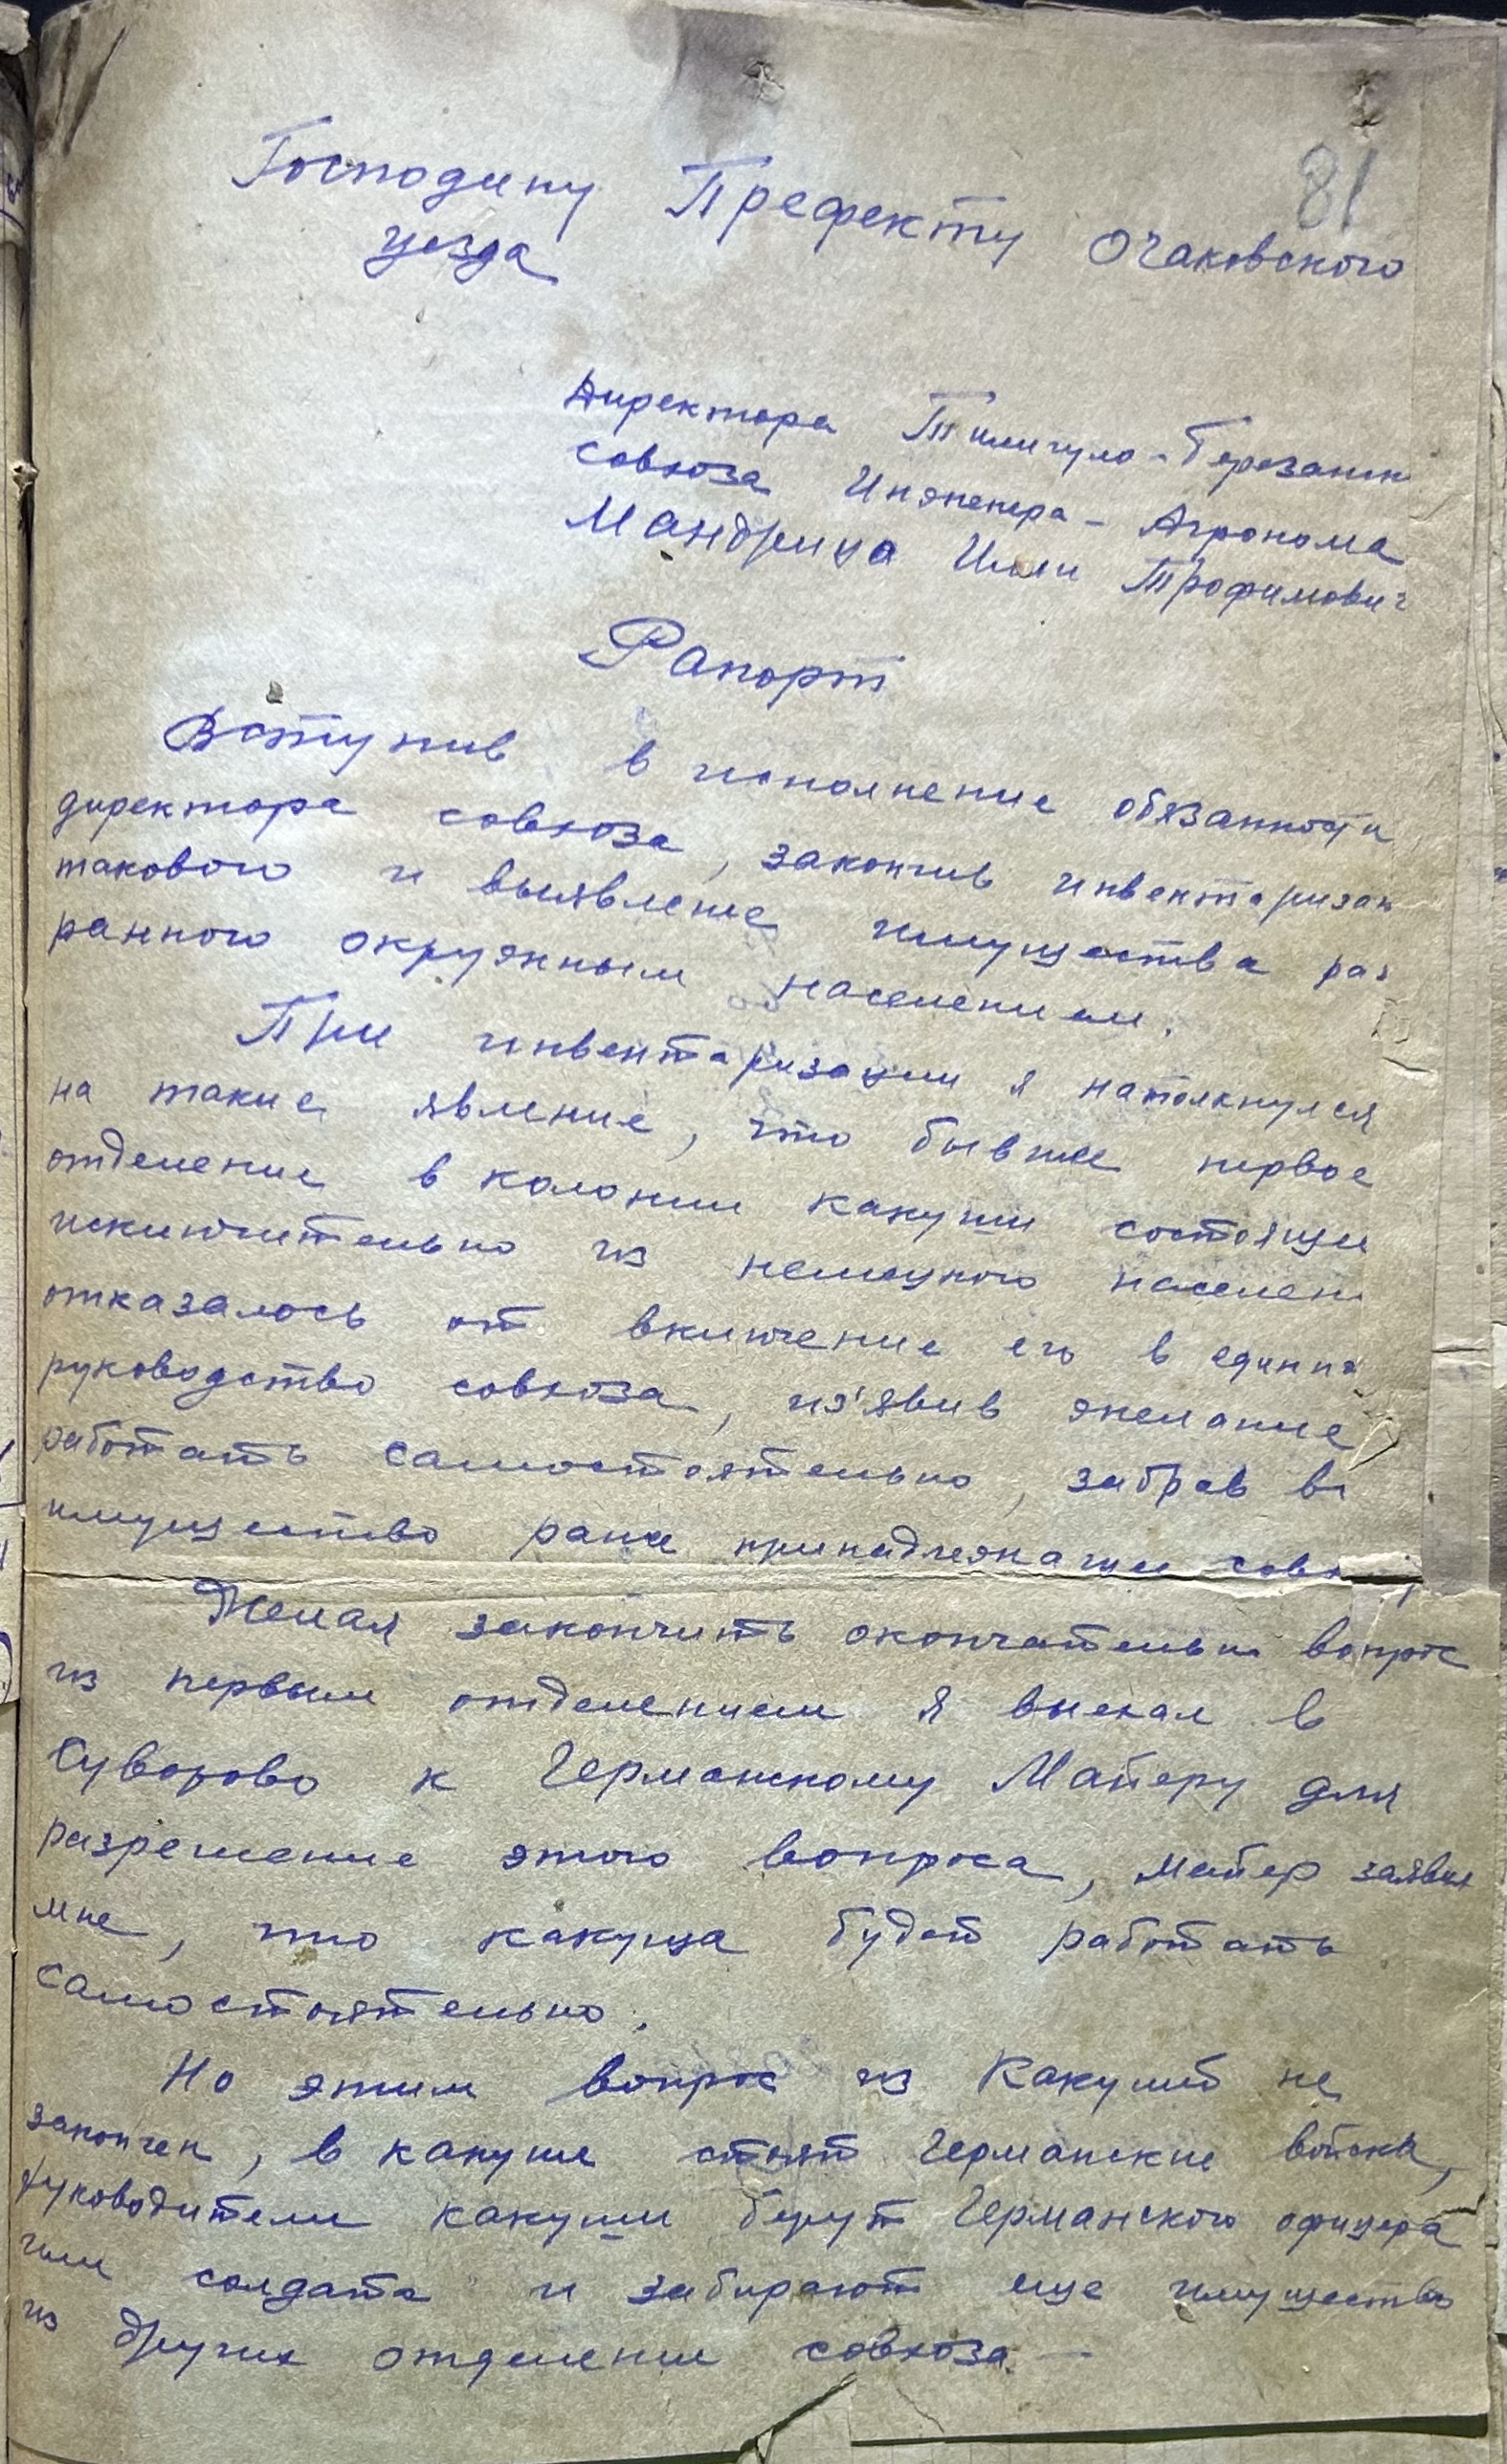 81
Господину Префекту Очаковского
уезда
Директора Тилигуло-Березанск
совхоза Инженера-Агронома
Мандрица Ильи Трофимович
Рапорт
Вступив в исполнение обязанности
директора совхоза, закончив инвентаризац
такового и выявление имущества раз
ранного окружным населением.
При инвентаризации я натолкнулся
на такие явление, что бывшее первое
отделение в колонии какуши состоящи
исключительно из немецкого населени
отказалось от включение его в едина
руководство совхоза, из'явив желание
работать самостоятельно, забрав вс
имущество ранее принадлежащее совхоз
Желая закончить окончательно вопрос
из первым отделением я выехал в
Суворово к Германскому Майеру для
разрешение этого вопроса, майер заявил
мне, что какуша будет работать
самостоятельно.
Но этим вопрос из Какушей не
закончен, в какуше стоят Германские войска,
руководители какуши берут Германского офицера
или солдата и забирают еще имущество
из других отделение совхоза. —